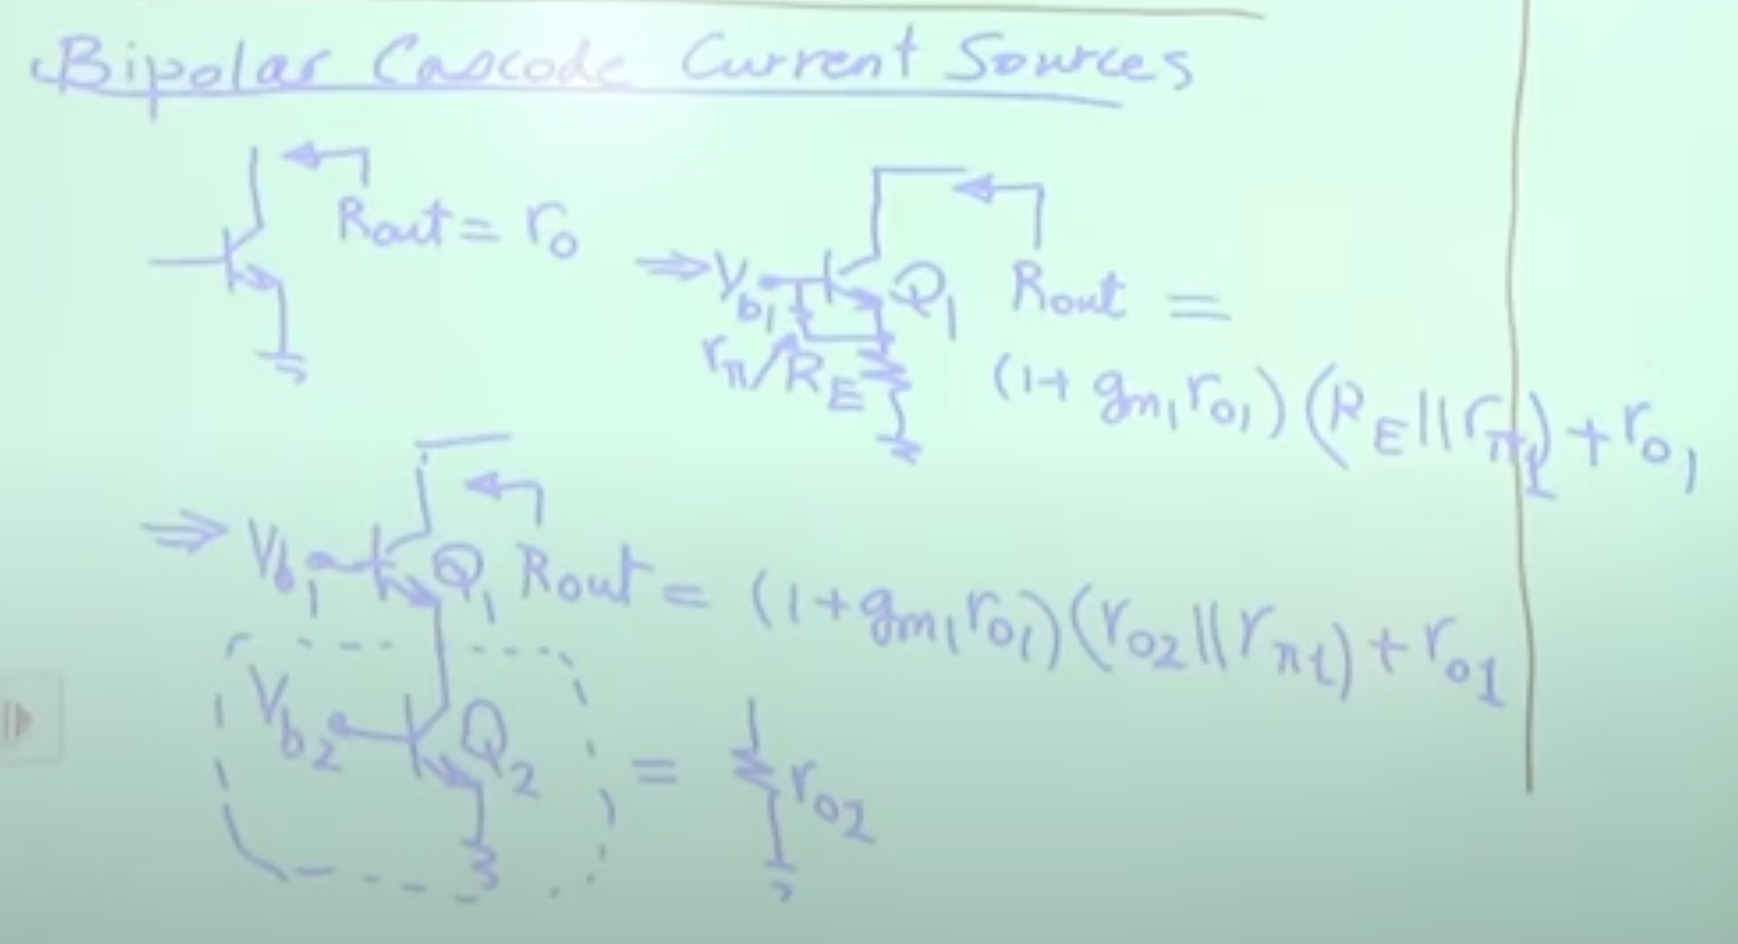 Bipolar Cascode Current Sources
Rout = ro
⇒ Vb1 Q1 Rout =
rπ RE (1+ gm1ro1)(RE||rπ1) + ro1
⇒ Vb1 Q1 Rout = (1+gm1ro1)(ro2||rπ1) + ro1
Vb2 Q2 = ro2